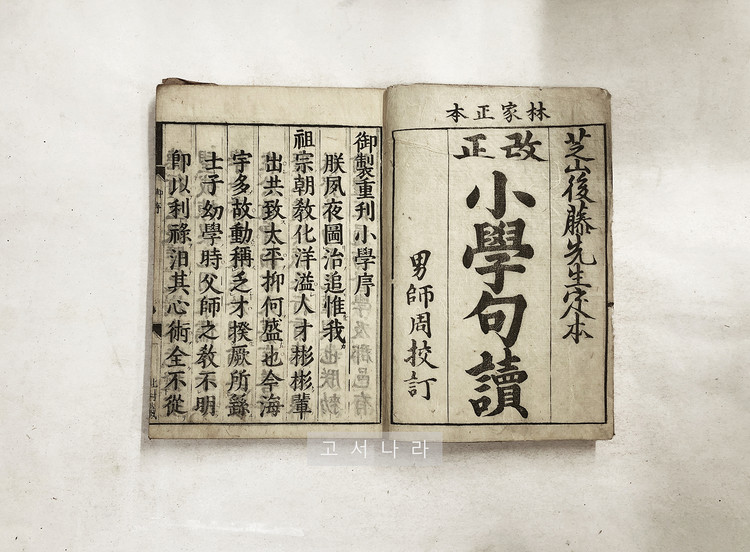 林家正本
改正
芝山後藤先生定本
小學句讀
男師周挍訂
御製重刋小學序
朕夙夜圖治追惟我
祖宗朝敎化洋溢人才彬彬輩
出共致太平抑何盛也今海
宇多故動稱乏才揆厥所繇
士子幼學時父師之敎不明
卽以利祿汨其心術全不從
고서나라